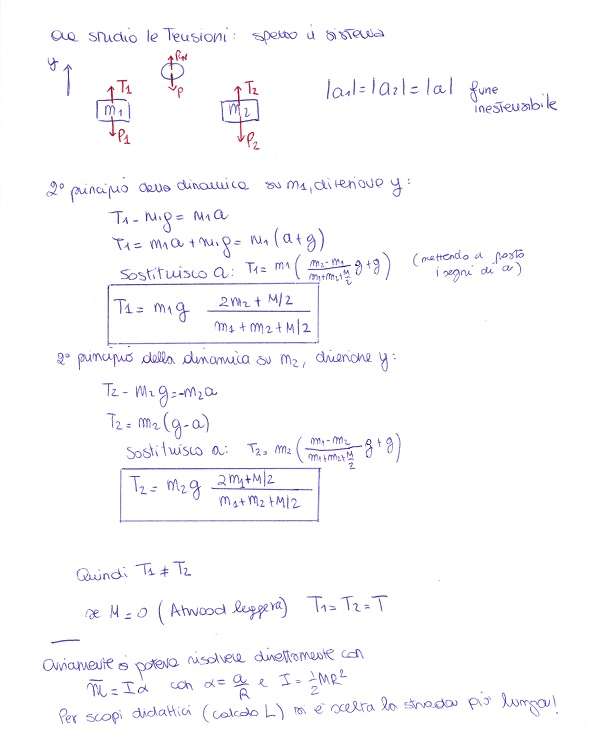 Ora studio le Tensioni: spezzo il sistema
y
T1
m1
P1
P
T2
m2
P2
|a1| = |a2| = |a| fune
inestensibile
2° principio della dinamica su m1, direzione y:
T1 - m1g = m1a
T1 = m1a + m1g = m1(a+g)
Sostituisco a: T1 = m1 ( (m2-m1)/(m1+m2+M/2) g + g ) (mettendo a posto
i segni di a)
T1 = m1g (2m2 + M/2)/(m1 + m2 + M/2)
2° principio della dinamica su m2, direzione y:
T2 - m2g = -m2a
T2 = m2(g-a)
Sostituisco a: T2 = m2 ( (m1-m2)/(m1+m2+M/2) g + g )
T2 = m2g (2m1 + M/2)/(m1 + m2 + M/2)
Quindi T1 ≠ T2
se M = 0 (Atwood leggera) T1 = T2 = T
Ovviamente si poteva risolvere direttamente con
= Iα con α = a/R e I = 1/2 MR²
Per scopi didattici (calcolo L) si è scelta la strada più lunga!